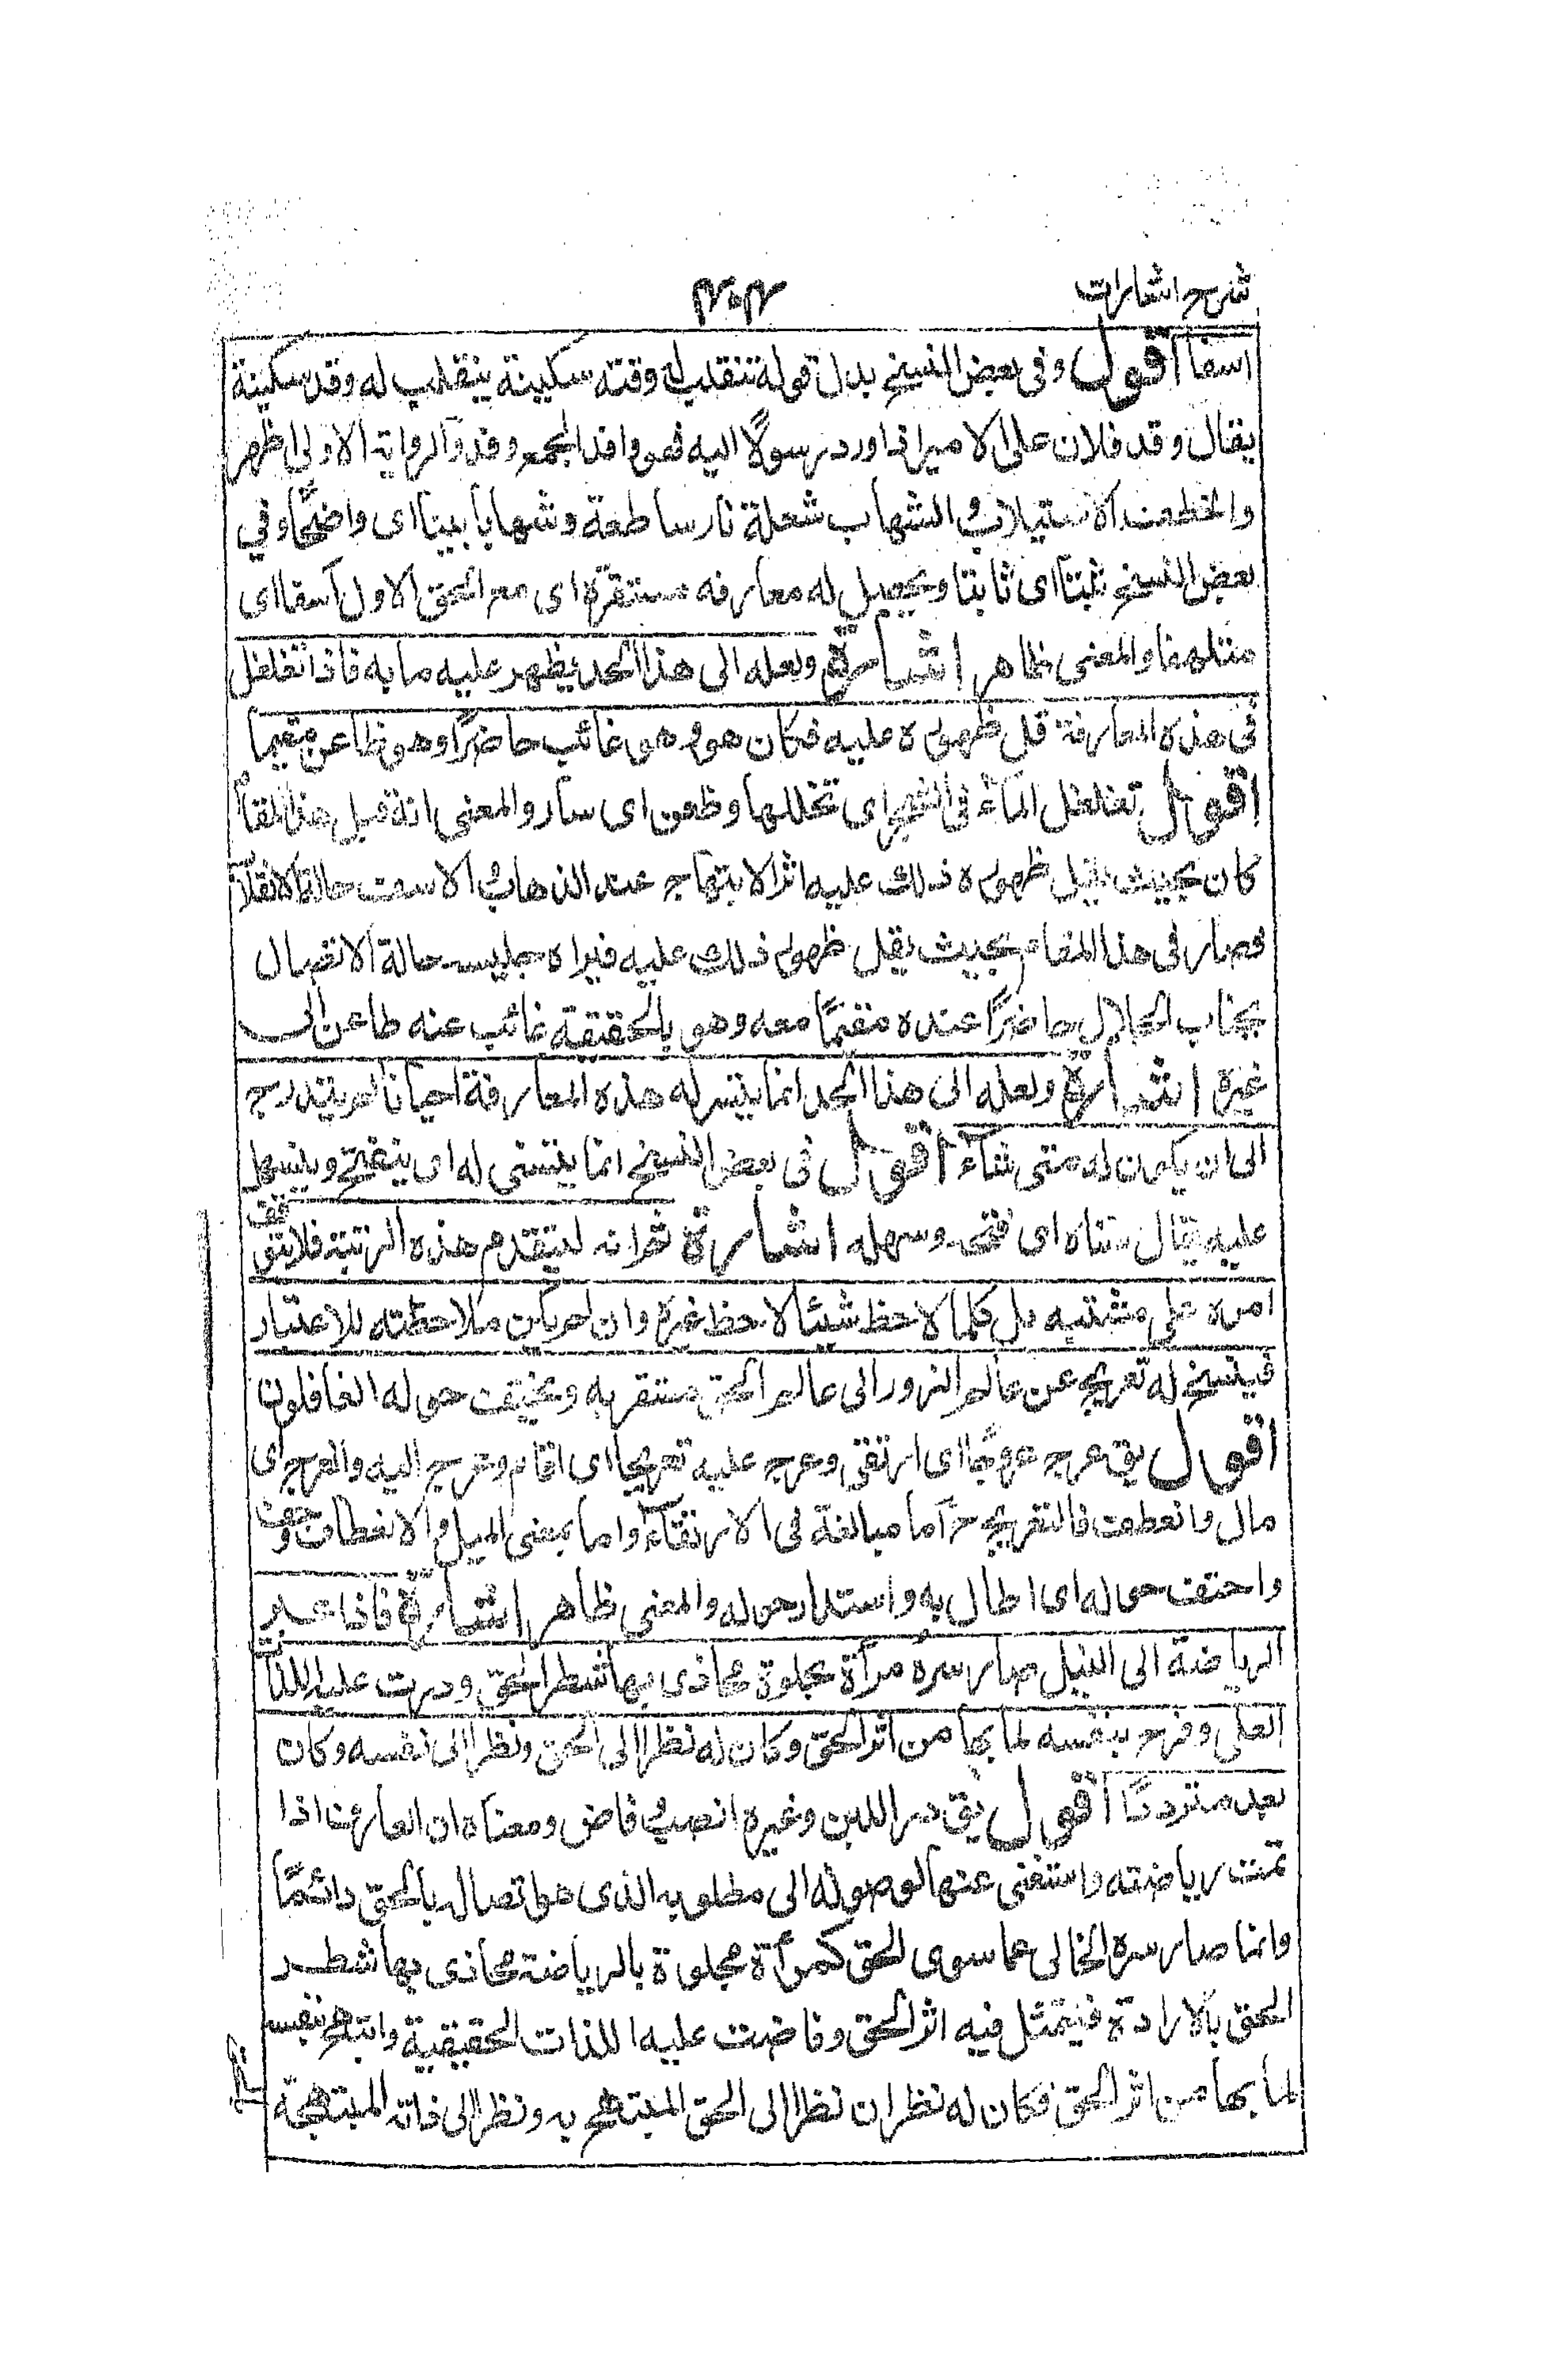 شرح اشارات
۴۰۴
اسفا اقول وفی بعض النسخ بدل قوله تنقلب له وقته سکینة ینقلب له وقد سکینة
یقال وقد فلان علی الامیر اذا ورد رسولًا الیه فهو وافد والجمع وفد والروایة الاولی اظهر
والخطف الاستیلاب والشهاب شعلة نار ساطعة وشهابا بینا ای واضحًا وفی
بعض النسخ ثبتا ای ثابتا ویحصل له معارفه مستقرة ای مع الحق الاول آسفا ای
متلهفا والمعنی ظاهر اشارة ولعله الی هذا الحد یظهر علیه ما به فاذا تغلغل
فی هذه المعارفة قل ظهوره علیه فکان هو وهو غائب حاضرًا وهو ظاعن مقیما
اقول تغلغل المآء فی الشجر ای تخللها وظعن ای سار والمعنی انه قبل هذا المقام
کان بحیث یقبل ظهوره ذلک علیه اثر الابتهاج عند الذهاب والاسف حالة الانقلاب
فصار فی هذا المقام بحیث یقل ظهور ذلک علیه فیراه جلیسه حالة الاتصال
بجناب الجلال حاضرًا عنده مقیمًا معه وهو بالحقیقة غائب عنه ظاعن الی
غیره اشارة ولعله الی هذا الحد انما یتیسر له هذه المعارفة احیانا ثم یتدرج
الی ان یکون له متی شآء اقول فی بعض النسخ انما یتسنی له ای ینفتح ویتسهل
علیه یقال سناه ای فتحه وسهله اشارة ثم انه لیتقدم هذه الرتبة فلا یتوقف
امره علی مشیته بل کلما لاحظ شیئا لاحظ غیره وان لم یکن ملاحظته للاعتبار
فیسنح له تعریج عن عالم الزور الی عالم الحق مستقر به ویحتف حوله الغافلون
اقول یق عرج عروجًا ای ارتقی وعرج علیه تعریجا ای اقام وعرج الیه وانعرج ای
مال وانعطف فالتعریج ح اما مبالغة فی الارتقآء واما بمعنی المیل والانعطاف وحف
واحتف حوله ای اطال به واستدار حوله والمعنی ظاهر اشارة فاذا عبر
الریاضة الی النیل صار سره مرآة مجلوة محاذی بها شطر الحق ودرت علیه اللذات
العلی وفرح بنفسه لما بها من اثر الحق وکان له نظر الی الحق ونظر الی نفسه وکان
بعد مترددًا اقول یق در اللبن وغیره انصب وفاض ومعناه ان العارف اذا
تمت ریاضته واستغنی عنها لوصوله الی مطلوبه الذی هو اتصاله بالحق دائمًا
وانما صار سره الخالی عما سوی الحق کمرآة مجلوة بالریاضة محاذی بها شطر
الحق بالارادة فیتمثل فیه اثر الحق وفاضت علیه اللذات الحقیقیة وابتهج بنفسه
لما بها من اثر الحق فکان له نظران نظر الی الحق المبتهج به ونظر الی ذاته المبتهجة